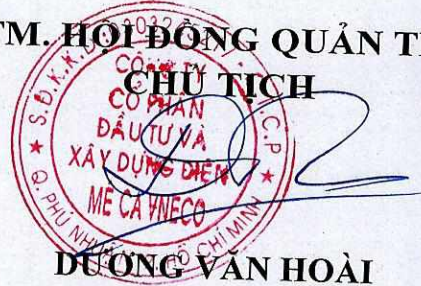 TM. HỘI ĐỒNG QUẢN T
CHỦ TỊCH
CÔNG TY
CỔ PHẦN
ĐẦU TƯ VÀ
XÂY DỰNG ĐIỆN
MÊ CA VNECO
Q. PHÚ NHUẬN
HỒ CHÍ MINH
DƯƠNG VĂN HOÀI